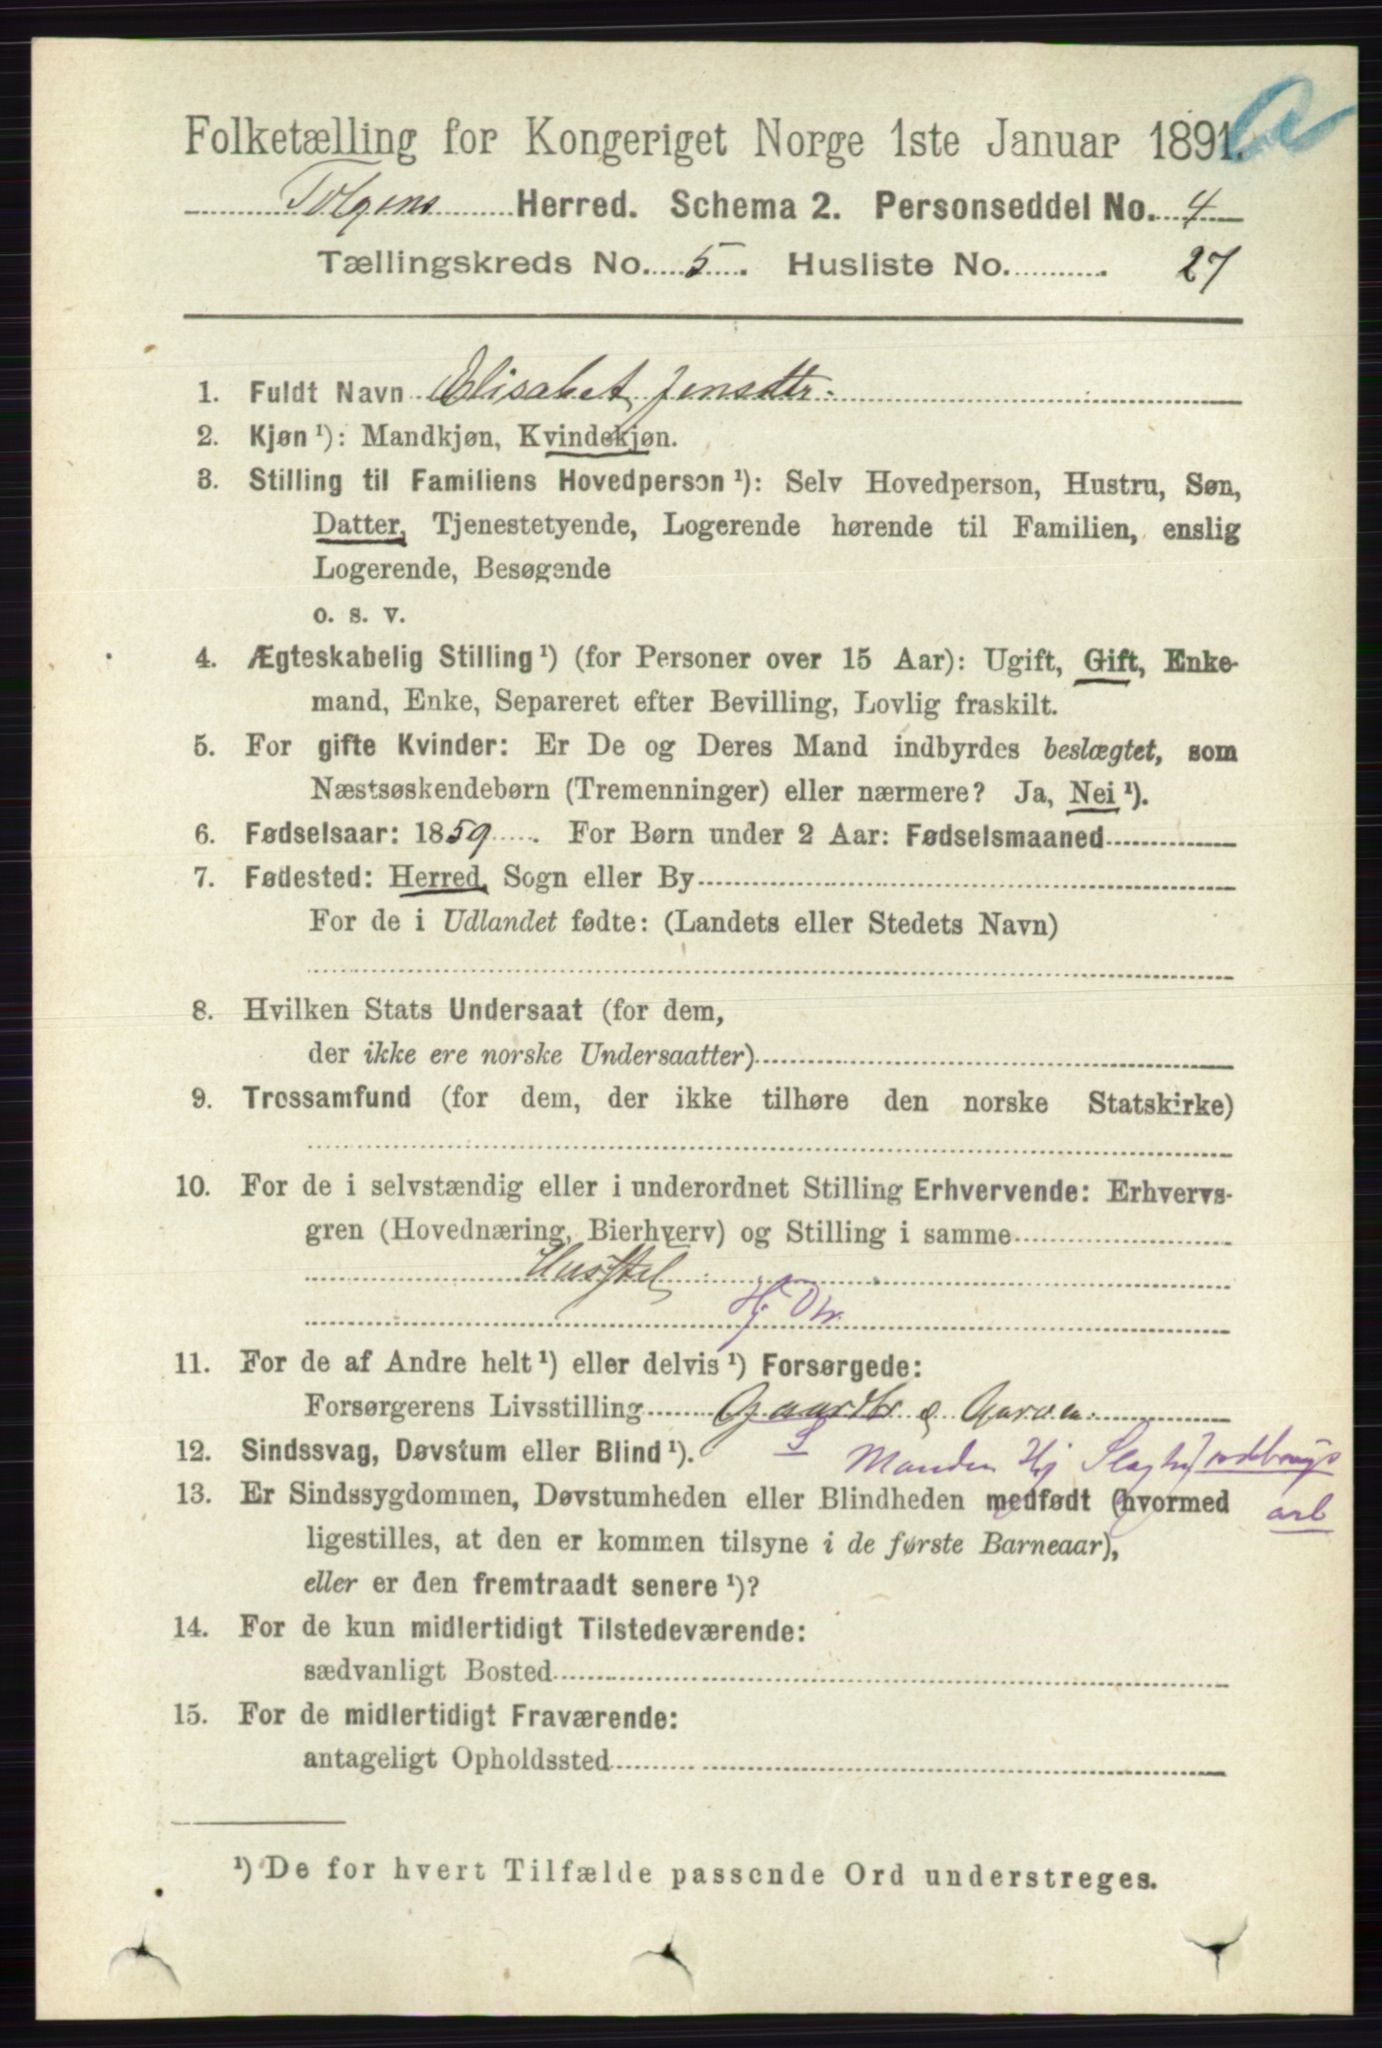 a
Folketælling for Kongeriget Norge 1ste Januar 1891.
Tolgens Herred. Schema 2. Personseddel No. 4
Tællingskreds No. 5. Husliste No. 27
1. Fuldt Navn Elisabet Jensdtr.
2. Kjøn ¹): Mandkjøn, Kvindekjøn.
3. Stilling til Familiens Hovedperson ¹): Selv Hovedperson, Hustru, Søn,
Datter, Tjenestetyende, Logerende hørende til Familien, enslig
Logerende, Besøgende
o. s. v.
4. Ægteskabelig Stilling ¹) (for Personer over 15 Aar): Ugift, Gift, Enke-
mand, Enke, Separeret efter Bevilling, Lovlig fraskilt.
5. For gifte Kvinder: Er De og Deres Mand indbyrdes beslægtet, som
Næstsøskendebørn (Tremenninger) eller nærmere? Ja, Nei ¹).
6. Fødselsaar: 1859. For Børn under 2 Aar: Fødselsmaaned
7. Fødested: Herred, Sogn eller By
For de i Udlandet fødte: (Landets eller Stedets Navn)
8. Hvilken Stats Undersaat (for dem,
der ikke ere norske Undersaatter)
9. Trossamfund (for dem, der ikke tilhøre den norske Statskirke)
10. For de i selvstændig eller i underordnet Stilling Erhvervende: Erhvervs-
gren (Hovednæring, Bierhverv) og Stilling i samme
Husstel
Hj Dtr.
11. For de af Andre helt ¹) eller delvis ¹) Forsørgede:
Forsørgerens Livsstilling Gaardbr
S
12. Sindssvag, Døvstum eller Blind ¹).
Manden Hj Jordbrugs
arb
13. Er Sindssygdommen, Døvstumheden eller Blindheden medfødt (hvormed
ligestilles, at den er kommen tilsyne i de første Barneaar),
eller er den fremtraadt senere ¹)?
14. For de kun midlertidigt Tilstedeværende:
sædvanligt Bosted
15. For de midlertidigt Fraværende:
antageligt Opholdssted
¹) De for hvert Tilfælde passende Ord understreges.